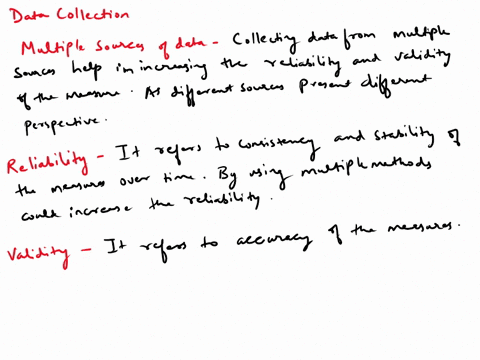 Data Collection
Multiple sources of data - Collecting data from multiple
sources help in increasing the reliability and validity
of the measure. As different sources present different
perspective.
Reliability - It refers to consistency and stability of
the measures over time. By using multiple methods
could increase the reliability.
Validity - It refers to accuracy of the measures.